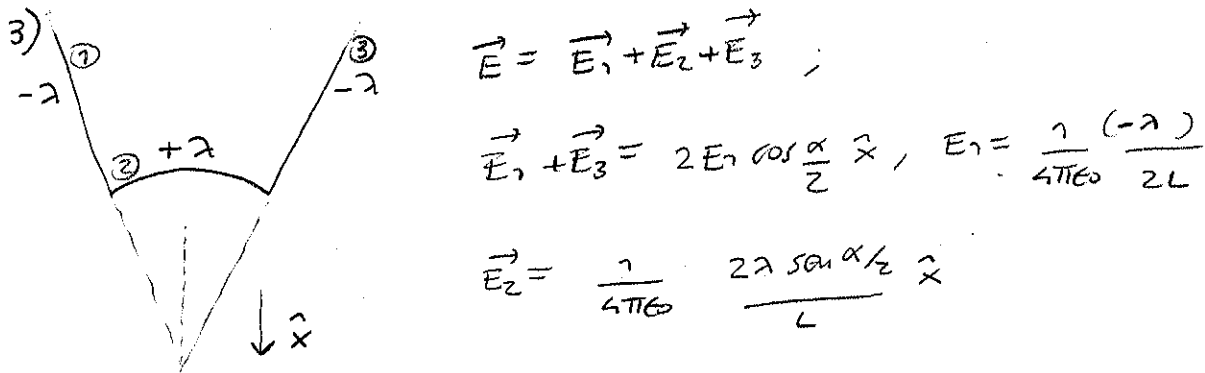 3)
①
-λ
②
+λ
③
-λ
x̂
E⃗ = E⃗₁ + E⃗₂ + E⃗₃ ;
E⃗₁ + E⃗₃ = 2E₁ cos α/2 x̂, E₁ = 1/4πε₀ (-λ)/2L
E⃗₂ = 1/4πε₀ 2λ sen α/2 / L x̂